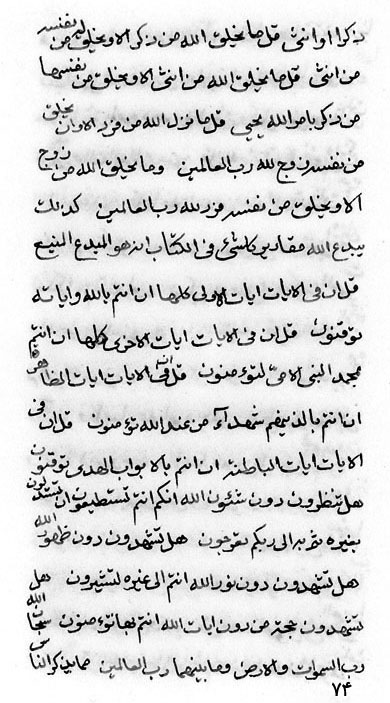 ذكرا او انثى قل ما يخلق الله من ذكر الا ويخلق له من نفسه
من انثى قل ما يخلق الله من انثى الا ويخلق من نفسها
من ذكر بامر الله يحيى قل ما نزل الله من فرد الا وان يخلق
من نفسه زوج لله رب العالمين وما يخلق الله من زوج
الا ويخلق من نفسه فرد لله رب العالمين كذلك
يبدع الله مقادير كلشئ فى الكتاب انه هو المبدع المنيع
قل ان فى الايات ايات الاولى كلها ان انتم بالله واياته
توقنون قل ان فى الايات ايات الاخرى كلها ان انتم
بمحمد النبى الامى لتؤمنون قل ان فى الايات ايات الظاهر
ان انتم بالذينهم شهداء من عند الله تؤمنون قل ان فى
الايات ايات الباطنة ان انتم بالابواب الهدى توقنون
هل تنظرون دون شئون الله انكم انتم تستطيعون ان تستدلون
بغيره ثم به الى ربكم تعرجون هل تشهدون دون ظهور الله
هل تشهدون دون نور الله انتم الى غيره لتشيرون هل
تشهدون حجة من دون ايات الله انتم بها تؤمنون سبحان الله
رب السموات والارض وما بينهما رب العالمين عما يذكر الناس
٧۴